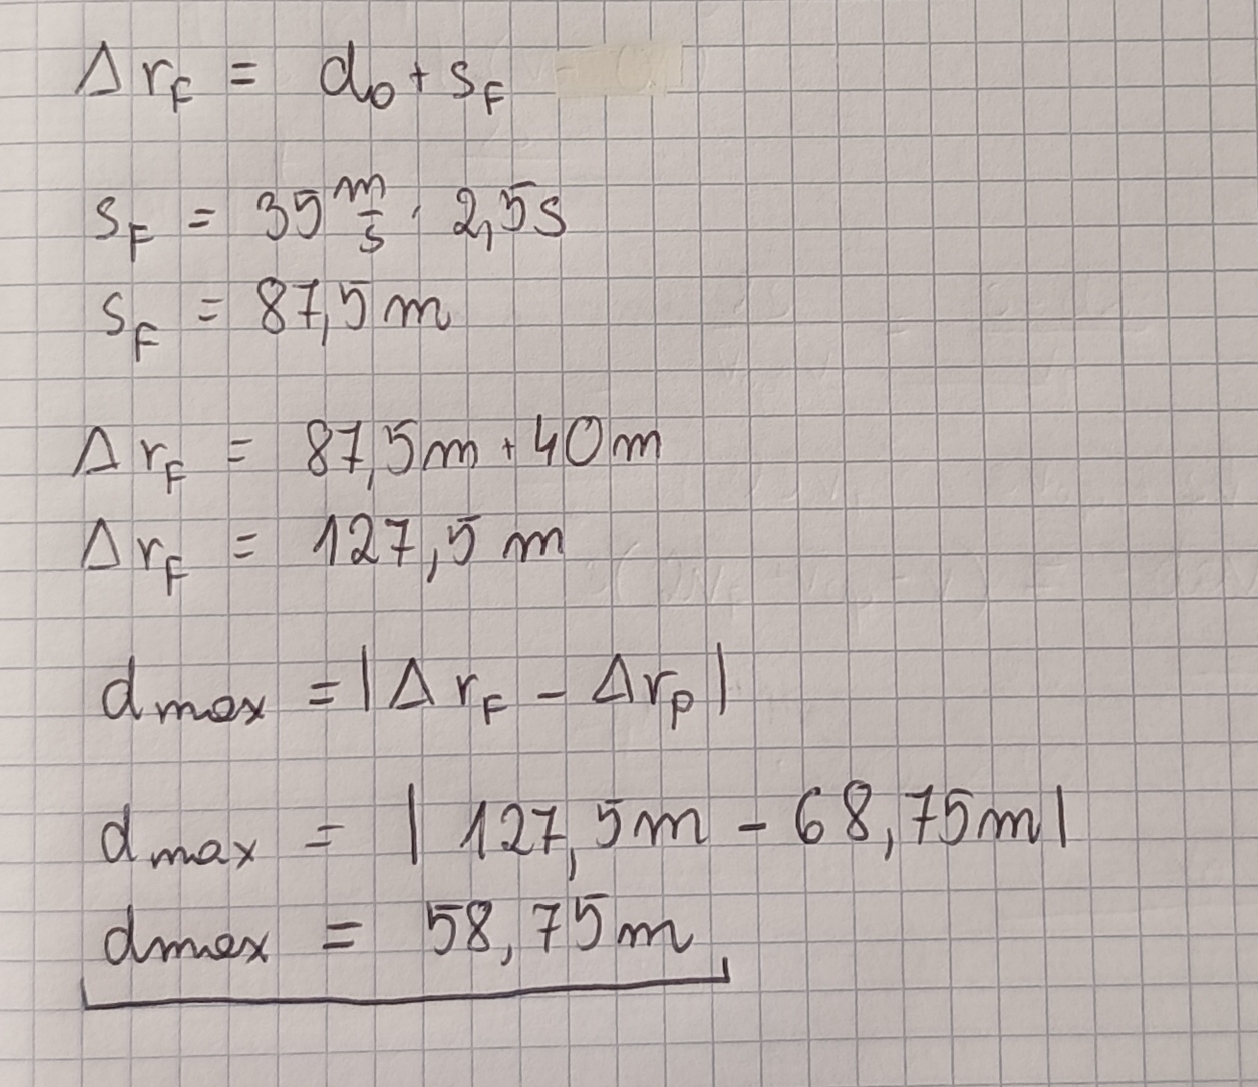 Δr_F = d_0 + s_F
s_F = 35 m/s · 2,5s
s_F = 87,5m
Δr_F = 87,5m + 40m
Δr_F = 127,5 m
d_max = |Δr_F - Δr_P|
d_max = | 127,5m - 68,75m|
d_max = 58,75m